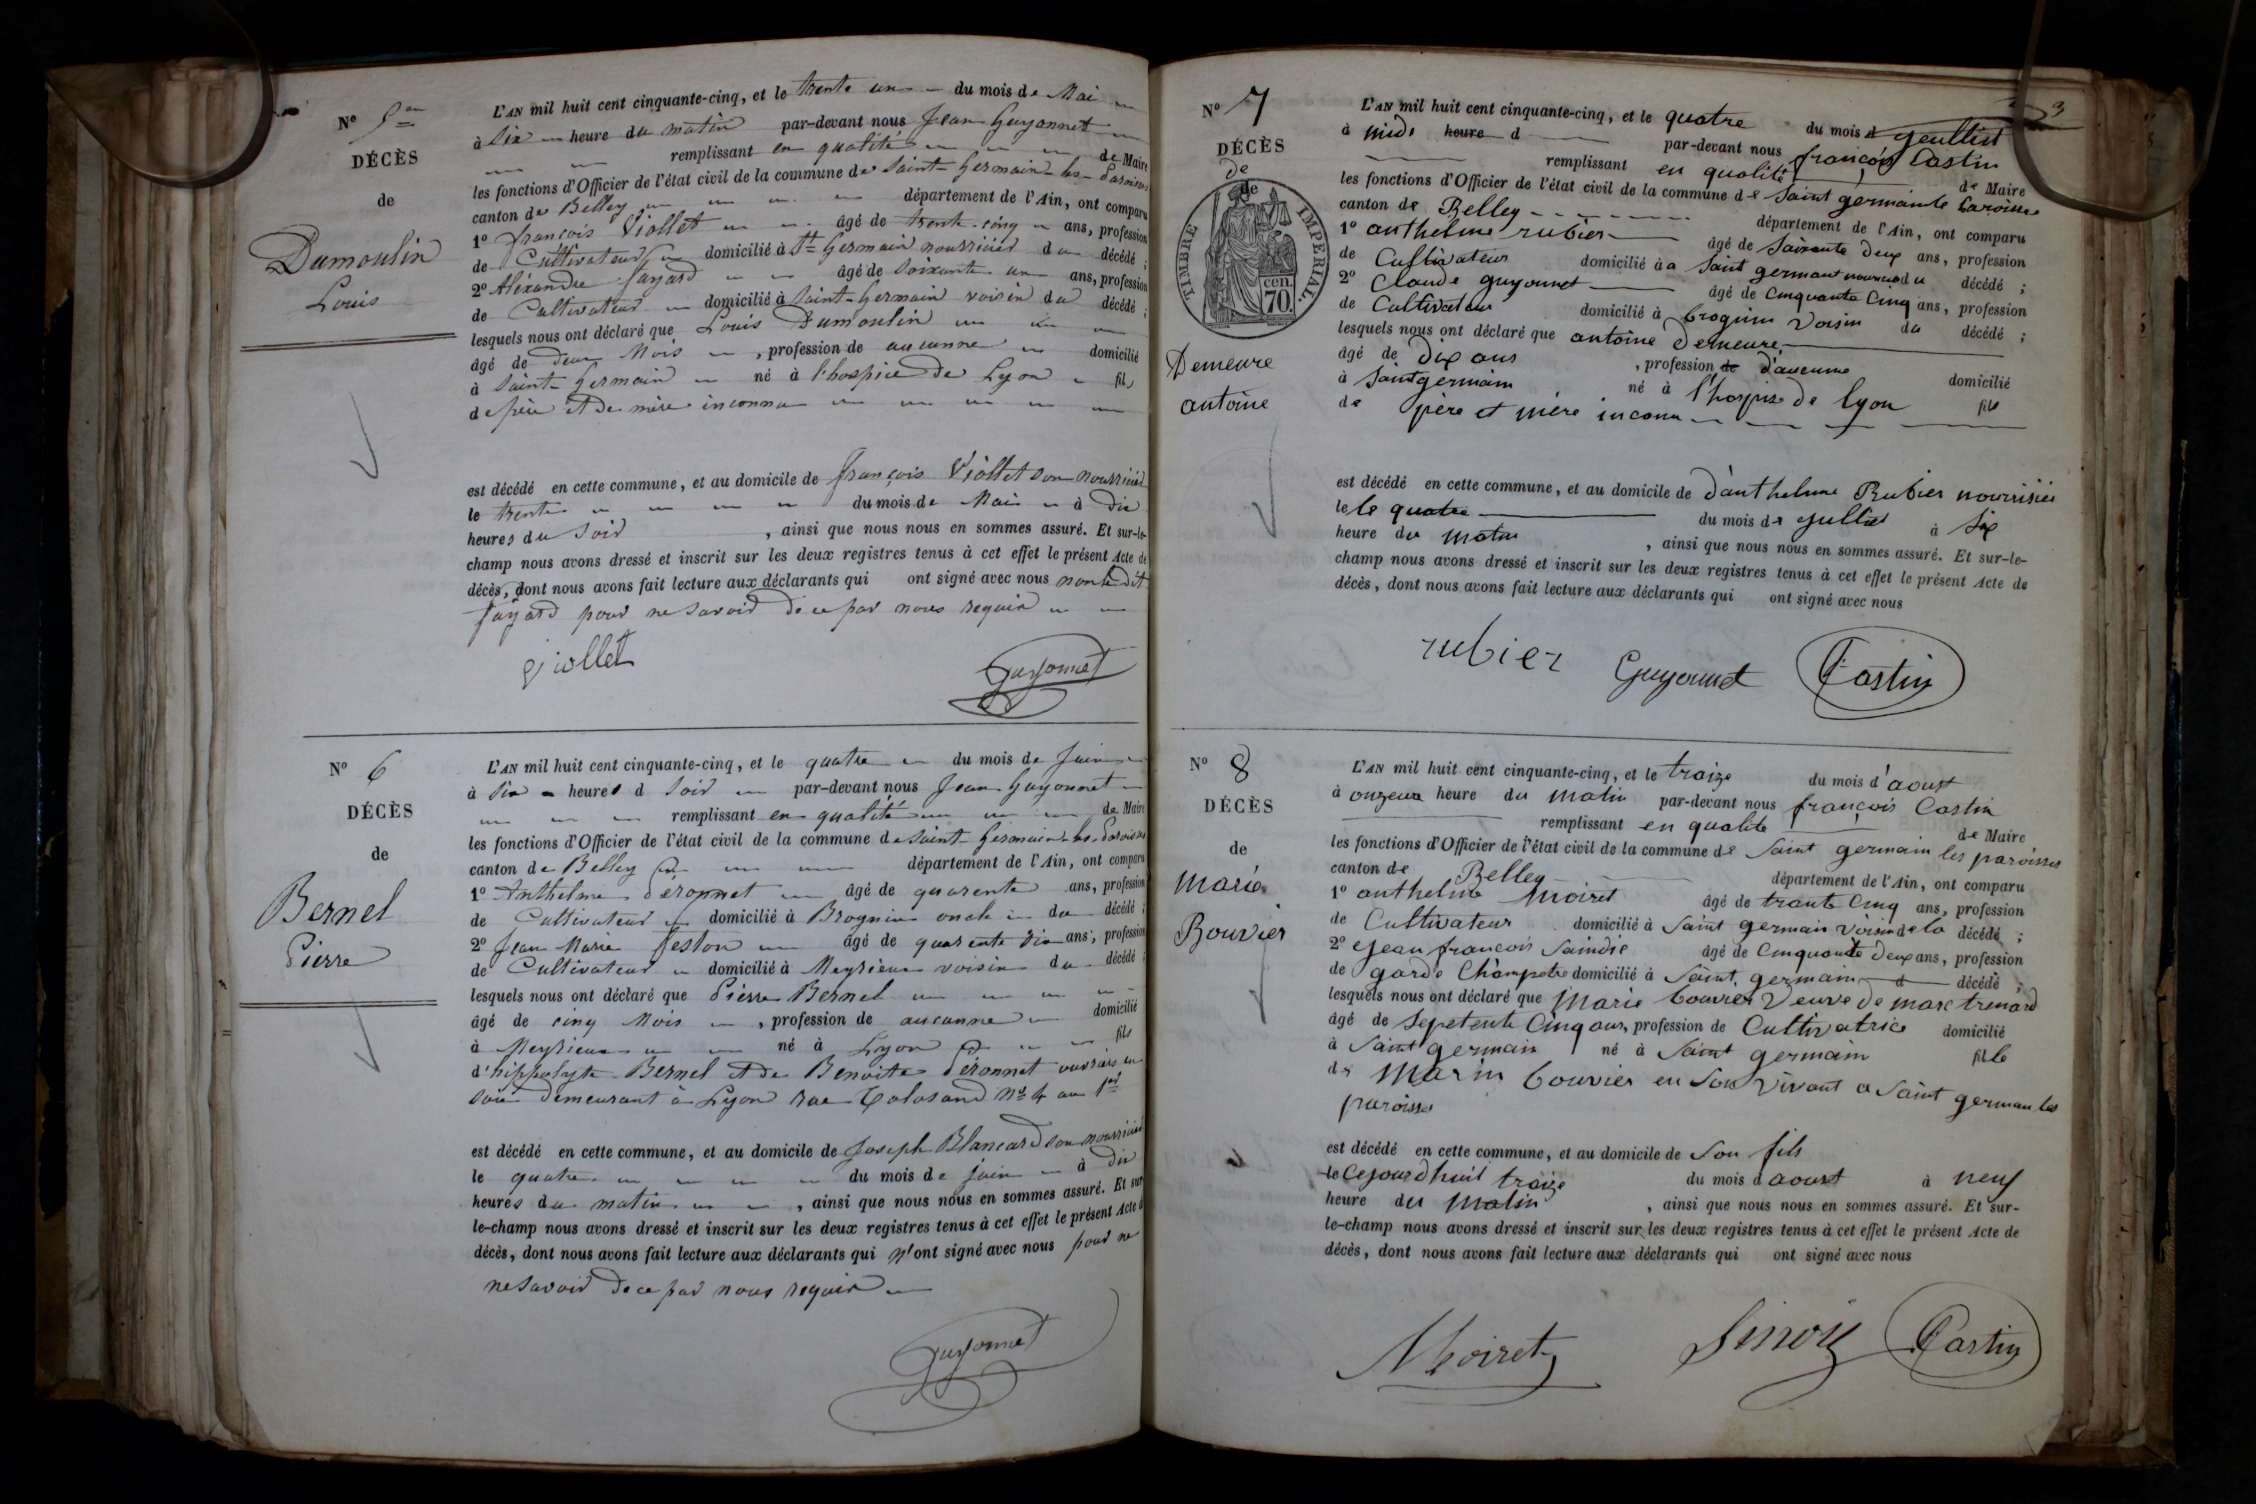 Nº 5
DÉCÈS
de
Dumoulin
Louis
L'AN mil huit cent cinquante-cinq, et le trente un du mois de Mai
à Six heure du matin par-devant nous Jean Guyonnet
remplissant en qualité de Maire
les fonctions d'Officier de l'état civil de la commune de Saint-Germain-les-Paroisses
canton de Belley département de l'Ain, ont comparu
1º françois Viollet âgé de trente-cinq ans, profession
de Cultivateur domicilié à St Germain nourricier du décédé ;
2º Alexandre fayard âgé de Soixante un ans, profession
de Cultivateur domicilié à Saint-Germain voisin du décédé ;
lesquels nous ont déclaré que Louis Dumoulin
âgé de deux Mois , profession de aucunne domicilié
à Saint-Germain né à l'hospice de Lyon fils
de père et de mère inconnu
est décédé en cette commune, et au domicile de françois Viollet son nourricier
le trente du mois de Mai à dix
heures du Soir , ainsi que nous nous en sommes assuré. Et sur-le-
champ nous avons dressé et inscrit sur les deux registres tenus à cet effet le présent Acte de
décès, dont nous avons fait lecture aux déclarants qui ont signé avec nous non le dit
fayard pour ne Savoir de ce par nous requis
Viollet
Guyonnet
Nº 6
DÉCÈS
de
Bernel
Pierre
L'AN mil huit cent cinquante-cinq, et le quatre du mois de Juin
à Six heures d Soir par-devant nous Jean Guyonnet
remplissant en qualité de Maire
les fonctions d'Officier de l'état civil de la commune de Saint-Germain-les-Paroisses
canton de Belley département de l'Ain, ont comparu
1º Anthelme déronnet âgé de quarente ans, profession
de Cultivateur domicilié à Brognin oncle du décédé ;
2º Jean Marie feston âgé de quarente Six ans, profession
de Cultivateur domicilié à Meyrieux voisin du décédé ;
lesquels nous ont déclaré que Pierre Bernel
âgé de cinq Mois , profession de aucunne domicilié
à Meyrieux né à Lyon fils
d'hippolyte Bernel et de Benoite déronnet ouvriers en
soie demeurant à Lyon rue Tolosand Nº 4 au 1er
est décédé en cette commune, et au domicile de Joseph Blancard son nourricier
le quatre du mois de Juin à dix
heures du matin , ainsi que nous nous en sommes assuré. Et sur
le-champ nous avons dressé et inscrit sur les deux registres tenus à cet effet le présent Acte d
décès, dont nous avons fait lecture aux déclarants qui n'ont signé avec nous pour ne
ne Savoir de ce par nous requis
Guyonnet
3
Nº 7
DÉCÈS
de
de
TIMBRE IMPÉRIAL.
cen.
70.
Demeure
antoine
L'AN mil huit cent cinquante-cinq, et le quatre du mois d jeuilliet
à midi heure d par-devant nous françois Castin
remplissant en qualité de Maire
les fonctions d'Officier de l'état civil de la commune de Saint germain le Paroisse
canton de Belley département de l'Ain, ont comparu
1º anthelme rubier âgé de Soixante deux ans, profession
de Cultivateur domicilié à a Saint germain nourricier du décédé ;
2º Claude guyonnet âgé de cinquante cinq ans, profession
de Cultivateur domicilié à brognin voisin du décédé ;
lesquels nous ont déclaré que antoine demeure
âgé de dix ans , profession de d'aucune domicilié
à Saint germain né à l'hospise de lyon fils
de père et mère inconu
est décédé en cette commune, et au domicile de d'anthelme Rubier nourrisiée
le le quatre du mois de jullliet à Six
heure du matin , ainsi que nous nous en sommes assuré. Et sur-le-
champ nous avons dressé et inscrit sur les deux registres tenus à cet effet le présent Acte de
décès, dont nous avons fait lecture aux déclarants qui ont signé avec nous
rubier Guyonnet Castin
Nº 8
DÉCÈS
de
Marie
Bouvier
L'AN mil huit cent cinquante-cinq, et le traize du mois d'aoust
à onzeux heure du matin par-devant nous françois Castin
remplissant en qualite de Maire
les fonctions d'Officier de l'état civil de la commune de Saint germain les paroisses
canton de Belley département de l'Ain, ont comparu
1º anthelme Moiret âgé de trante cinq ans, profession
de Cultivateur domicilié à Saint germain voisin de la décédé ;
2º jean françois Saindis âgé de cinquante deux ans, profession
de garde Champetre domicilié à Saint germain d décédé ;
lesquels nous ont déclaré que Marie bouvier veuve de marc trenard
âgé de Sepetente cinq ans, profession de Cultivatrice domicilié
à Saint germain né à Saint germain fille
de Marin bouvier en Son vivant a Saint germain les
paroisses
est décédé en cette commune, et au domicile de Son fils
le cejourdhuit traize du mois d aoust à neuf
heure du matin , ainsi que nous nous en sommes assuré. Et sur-
le-champ nous avons dressé et inscrit sur les deux registres tenus à cet effet le présent Acte de
décès, dont nous avons fait lecture aux déclarants qui ont signé avec nous
Moiret Castin